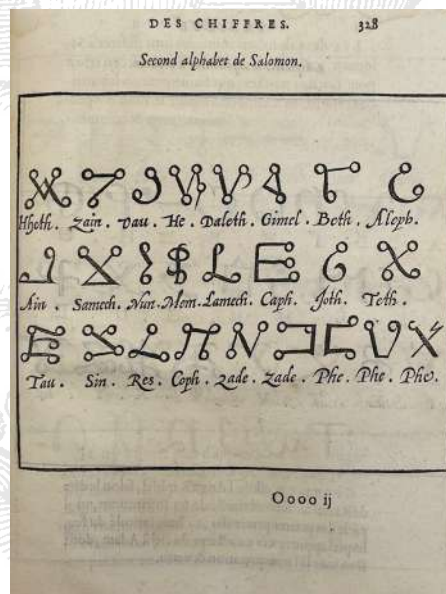 DES CHIFFRES. 328
Second alphabet de Salomon.
Hheth. Zain. Vau. He. Daleth. Gimel. Beth. Aleph.
Ain. Samech. Nun. Mem. Lamech. Caph. Joth. Teth.
Tau. Sin. Res. Coph. Zade. Zade. Phe. Phe. Phe.
Oooo ij